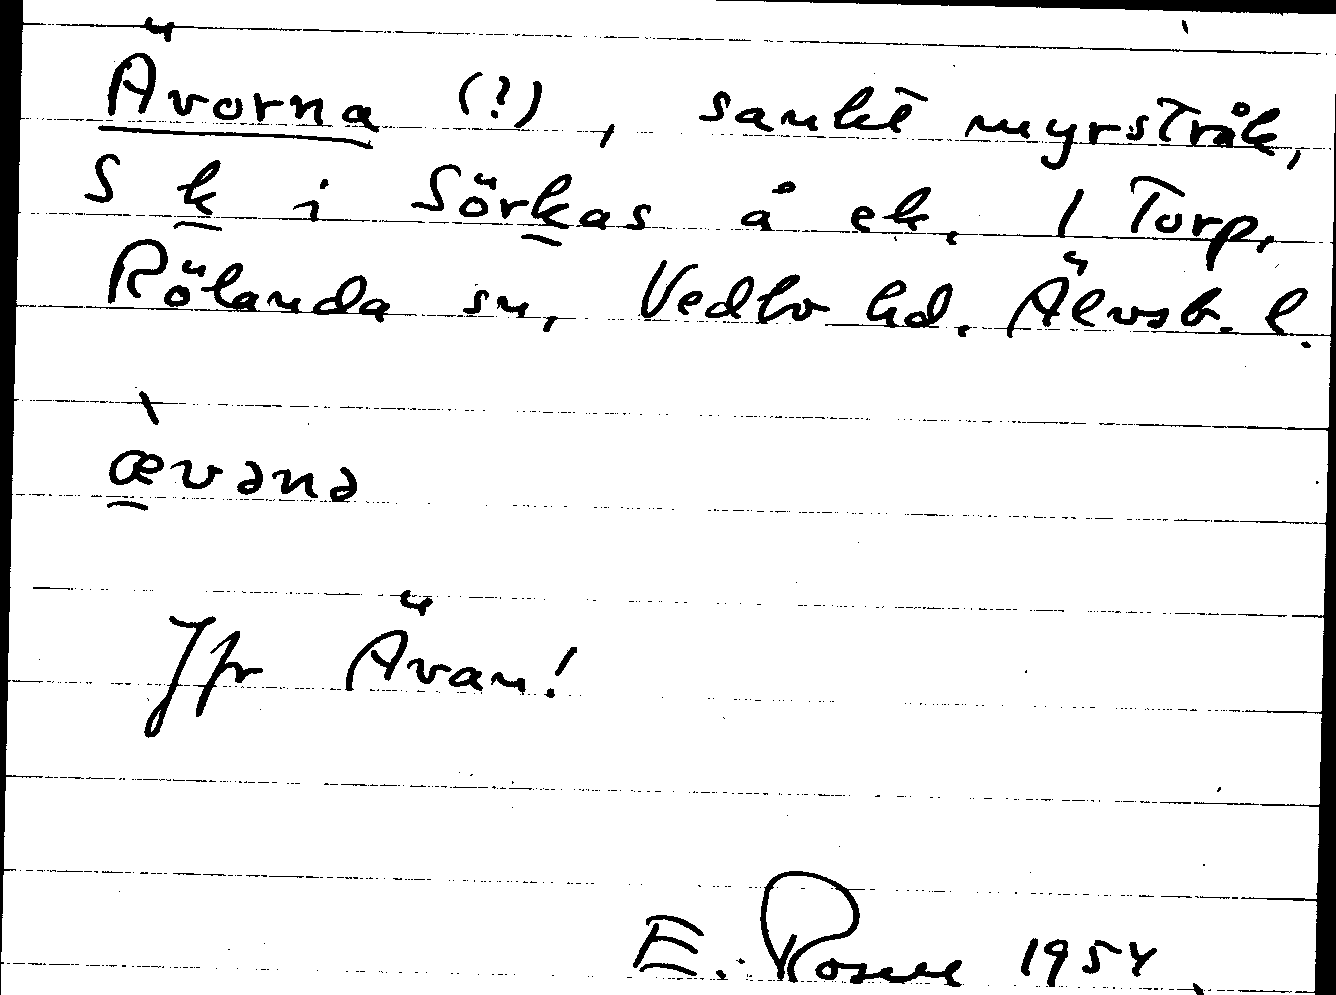 Ävorna (?), sankt myrstråk,
S k i Sörkas å ek. 1 Torp,
Rölanda sn, Vedbo hd. Älvsb. l.
ævənə
Jfr Ävan!
E. Rosell 1954